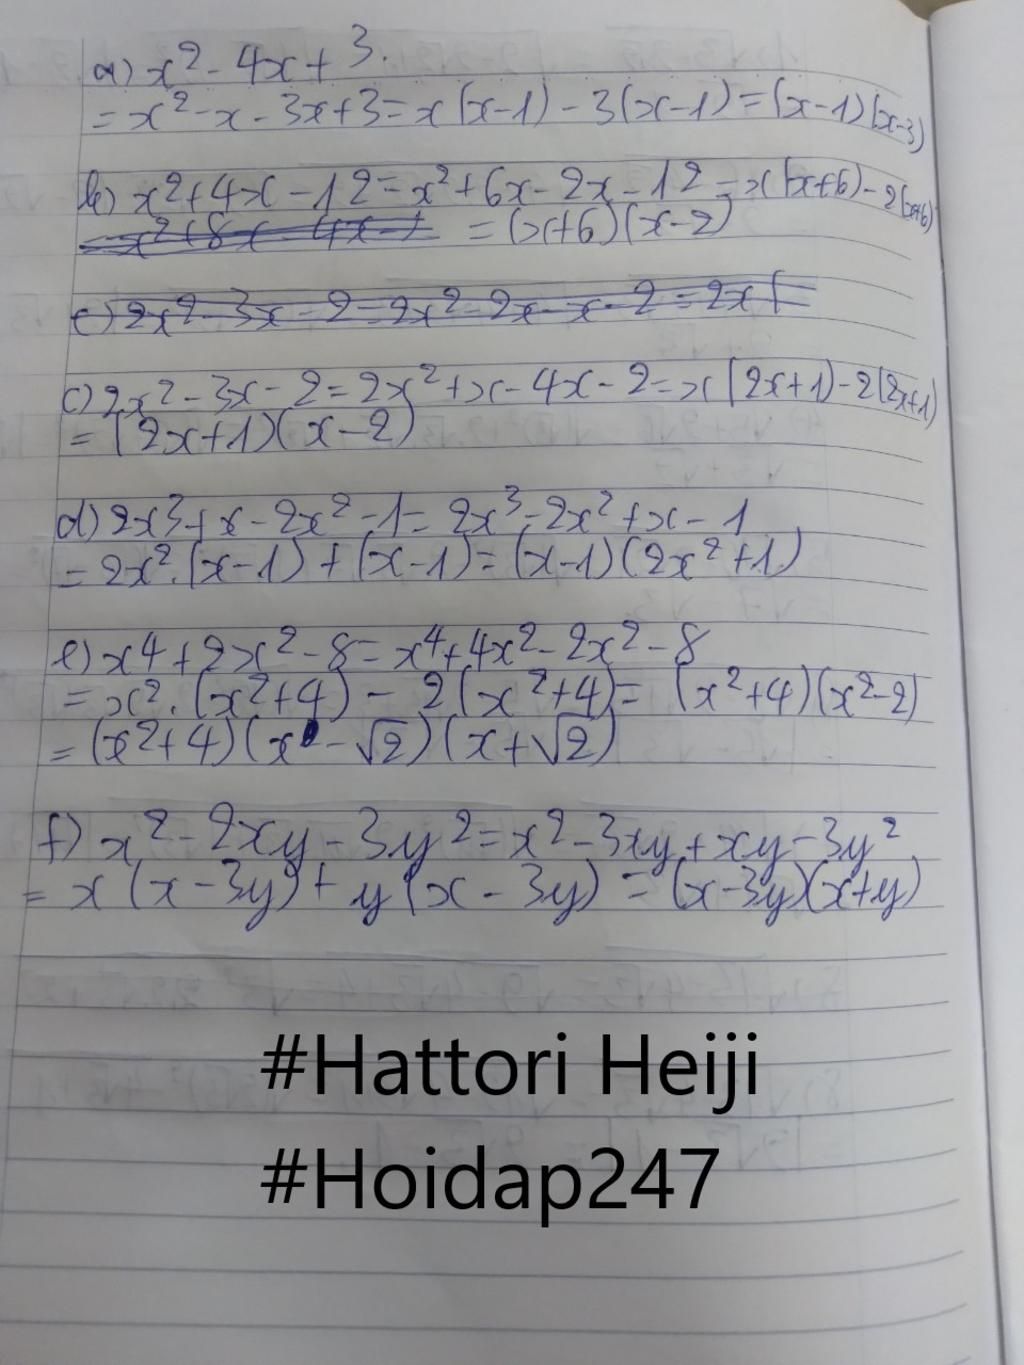 a) x² - 4x + 3.
= x² - x - 3x + 3 = x (x - 1) - 3 (x - 1) = (x - 1) (x - 3)
b) x² + 4x - 12 = x² + 6x - 2x - 12 = x (x + 6) - 2 (x + 6)
= (x + 6) (x - 2)
c) 2x² - 3x - 2 = 2x² - 2x - x - 2 = 2x (
c) 2x² - 3x - 2 = 2x² + x - 4x - 2 = x (2x + 1) - 2 (2x + 1)
= (2x + 1) (x - 2)
d) 2x³ + x - 2x² - 1 = 2x³ - 2x² + x - 1
= 2x². (x - 1) + (x - 1) = (x - 1) (2x² + 1)
e) x⁴ + 2x² - 8 = x⁴ + 4x² - 2x² - 8
= x². (x² + 4) - 2 (x² + 4) = (x² + 4) (x² - 2)
= (x² + 4) (x - √2) (x + √2)
f) x² - 2xy - 3y² = x² - 3xy + xy - 3y²
= x (x - 3y) + y (x - 3y) = (x - 3y) (x + y)
#Hattori Heiji
#Hoidap247